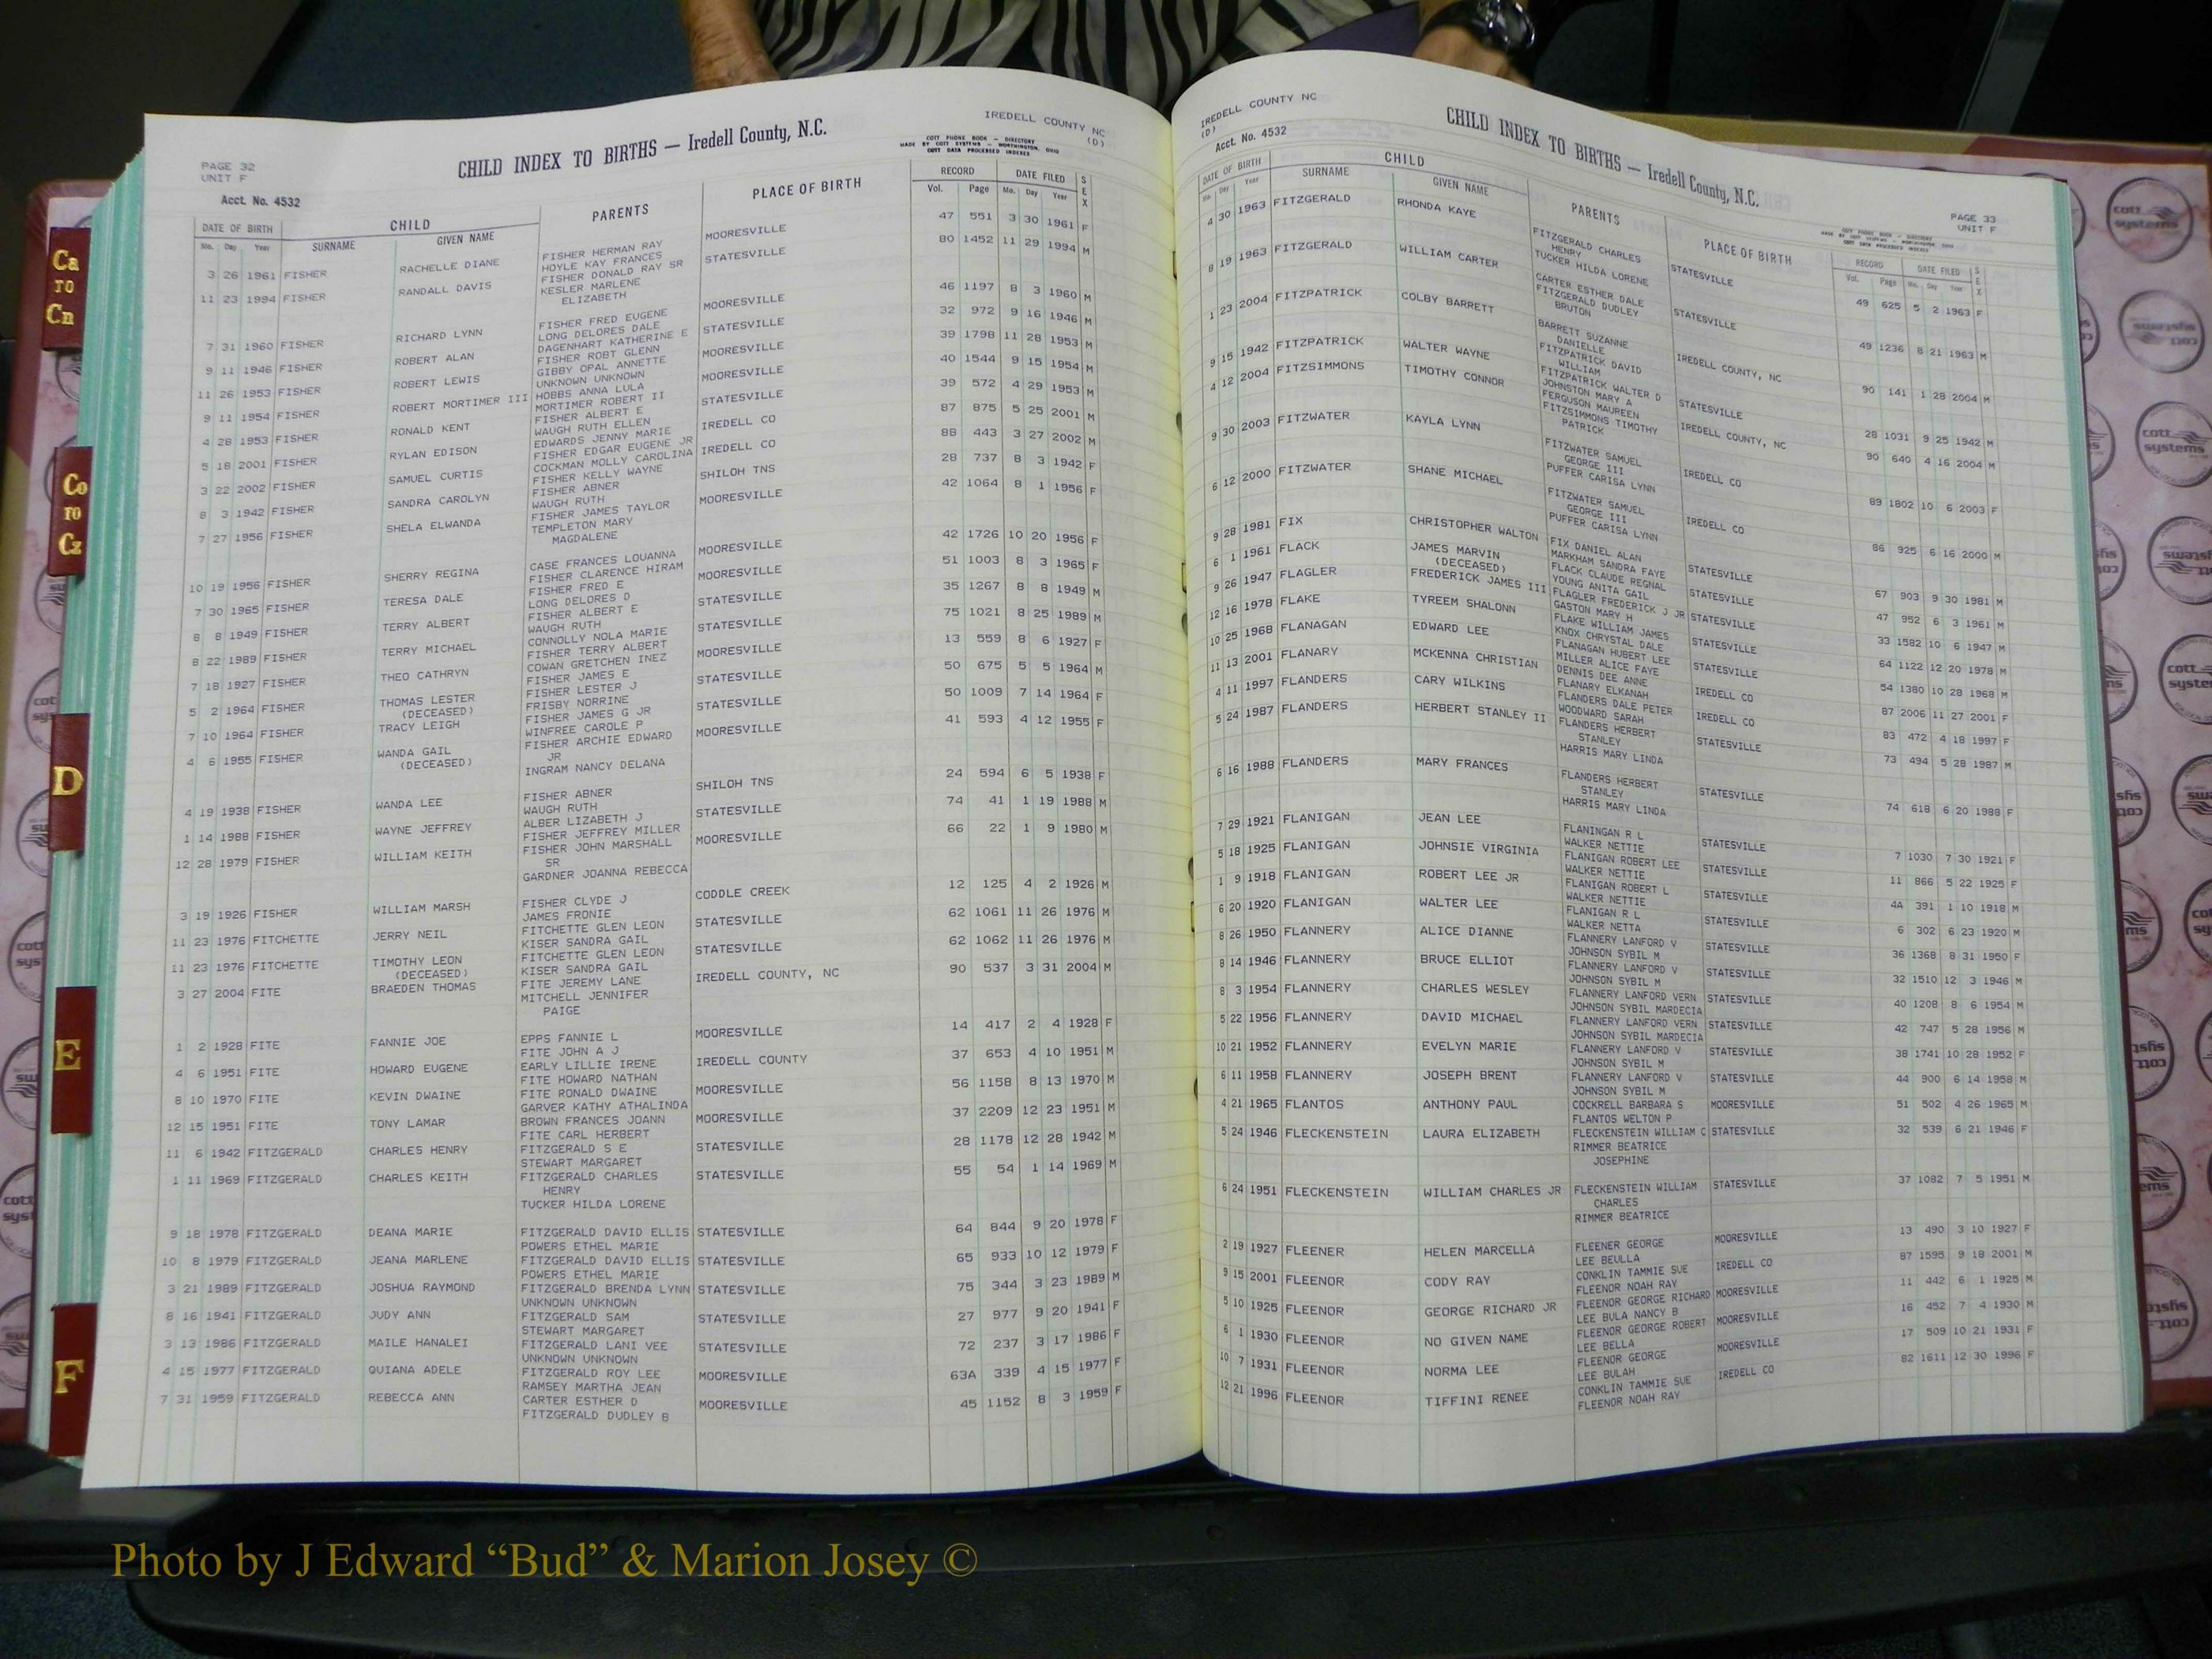 PAGE 32
UNIT F
Acct. No. 4532
CHILD INDEX TO BIRTHS — Iredell County, N.C.
IREDELL COUNTY NC
(D)
COTT PHONE BOOK — DIRECTORY
MADE BY COTT SYSTEMS — WORTHINGTON, OHIO
COTT DATA PROCESSED INDEXES
DATE OF BIRTH CHILD PARENTS PLACE OF BIRTH RECORD DATE FILED SEX
Mo. Day Year SURNAME GIVEN NAME Vol. Page Mo. Day Year
3 26 1961 FISHER RACHELLE DIANE FISHER HERMAN RAY MOORESVILLE 47 551 3 30 1961 F
HOYLE KAY FRANCES
11 23 1994 FISHER RANDALL DAVIS FISHER DONALD RAY SR STATESVILLE 80 1452 11 29 1994 M
KESLER MARLENE
ELIZABETH
7 31 1960 FISHER RICHARD LYNN FISHER FRED EUGENE MOORESVILLE 46 1197 8 3 1960 M
LONG DELORES DALE
9 11 1946 FISHER ROBERT ALAN DAGENHART KATHERINE E STATESVILLE 32 972 9 16 1946 M
FISHER ROBT GLENN
11 26 1953 FISHER ROBERT LEWIS GIBBY OPAL ANNETTE MOORESVILLE 39 1798 11 28 1953 M
UNKNOWN UNKNOWN
9 11 1954 FISHER ROBERT MORTIMER III HOBBS ANNA LULA MOORESVILLE 40 1544 9 15 1954 M
MORTIMER ROBERT II
4 28 1953 FISHER RONALD KENT FISHER ALBERT E STATESVILLE 39 572 4 29 1953 M
WAUGH RUTH ELLEN
5 18 2001 FISHER RYLAN EDISON EDWARDS JENNY MARIE IREDELL CO 87 875 5 25 2001 M
FISHER EDGAR EUGENE JR
3 22 2002 FISHER SAMUEL CURTIS COCKMAN MOLLY CAROLINA IREDELL CO 88 443 3 27 2002 M
FISHER KELLY WAYNE
8 3 1942 FISHER SANDRA CAROLYN FISHER ABNER SHILOH TNS 28 737 8 3 1942 F
WAUGH RUTH
7 27 1956 FISHER SHELA ELWANDA FISHER JAMES TAYLOR MOORESVILLE 42 1064 8 1 1956 F
TEMPLETON MARY
MAGDALENE
10 19 1956 FISHER SHERRY REGINA CASE FRANCES LOUANNA MOORESVILLE 42 1726 10 20 1956 F
FISHER CLARENCE HIRAM
7 30 1965 FISHER TERESA DALE FISHER FRED E MOORESVILLE 51 1003 8 3 1965 F
LONG DELORES D
8 8 1949 FISHER TERRY ALBERT FISHER ALBERT E STATESVILLE 35 1267 8 8 1949 M
WAUGH RUTH
8 22 1989 FISHER TERRY MICHAEL CONNOLLY NOLA MARIE STATESVILLE 75 1021 8 25 1989 M
FISHER TERRY ALBERT
7 18 1927 FISHER THEO CATHRYN COWAN GRETCHEN INEZ MOORESVILLE 13 559 8 6 1927 F
FISHER JAMES E
5 2 1964 FISHER THOMAS LESTER FISHER LESTER J STATESVILLE 50 675 5 5 1964 M
(DECEASED) FRISBY NORRINE
7 10 1964 FISHER TRACY LEIGH FISHER JAMES G JR STATESVILLE 50 1009 7 14 1964 F
WINFREE CAROLE P
4 6 1955 FISHER WANDA GAIL FISHER ARCHIE EDWARD MOORESVILLE 41 593 4 12 1955 F
(DECEASED) JR
INGRAM NANCY DELANA
4 19 1938 FISHER WANDA LEE FISHER ABNER SHILOH TNS 24 594 6 5 1938 F
WAUGH RUTH
1 14 1988 FISHER WAYNE JEFFREY ALBER LIZABETH J STATESVILLE 74 41 1 19 1988 M
FISHER JEFFREY MILLER
12 28 1979 FISHER WILLIAM KEITH FISHER JOHN MARSHALL MOORESVILLE 66 22 1 9 1980 M
SR
GARDNER JOANNA REBECCA
3 19 1926 FISHER WILLIAM MARSH FISHER CLYDE J CODDLE CREEK 12 125 4 2 1926 M
JAMES FRONIE
11 23 1976 FITCHETTE JERRY NEIL FITCHETTE GLEN LEON STATESVILLE 62 1061 11 26 1976 M
KISER SANDRA GAIL
11 23 1976 FITCHETTE TIMOTHY LEON FITCHETTE GLEN LEON STATESVILLE 62 1062 11 26 1976 M
(DECEASED) KISER SANDRA GAIL
3 27 2004 FITE BRAEDEN THOMAS FITE JEREMY LANE IREDELL COUNTY, NC 90 537 3 31 2004 M
MITCHELL JENNIFER
PAIGE
1 2 1928 FITE FANNIE JOE EPPS FANNIE L MOORESVILLE 14 417 2 4 1928 F
FITE JOHN A J
4 6 1951 FITE HOWARD EUGENE EARLY LILLIE IRENE IREDELL COUNTY 37 653 4 10 1951 M
FITE HOWARD NATHAN
8 10 1970 FITE KEVIN DWAINE FITE RONALD DWAINE MOORESVILLE 56 1158 8 13 1970 M
GARVER KATHY ATHALINDA
12 15 1951 FITE TONY LAMAR BROWN FRANCES JOANN MOORESVILLE 37 2209 12 23 1951 M
FITE CARL HERBERT
11 6 1942 FITZGERALD CHARLES HENRY FITZGERALD S E STATESVILLE 28 1178 12 28 1942 M
STEWART MARGARET
1 11 1969 FITZGERALD CHARLES KEITH FITZGERALD CHARLES STATESVILLE 55 54 1 14 1969 M
HENRY
TUCKER HILDA LORENE
9 18 1978 FITZGERALD DEANA MARIE FITZGERALD DAVID ELLIS STATESVILLE 64 844 9 20 1978 F
POWERS ETHEL MARIE
10 8 1979 FITZGERALD JEANA MARLENE FITZGERALD DAVID ELLIS STATESVILLE 65 933 10 12 1979 F
POWERS ETHEL MARIE
3 21 1989 FITZGERALD JOSHUA RAYMOND FITZGERALD BRENDA LYNN STATESVILLE 75 344 3 23 1989 M
UNKNOWN UNKNOWN
8 16 1941 FITZGERALD JUDY ANN FITZGERALD SAM STATESVILLE 27 977 9 20 1941 F
STEWART MARGARET
3 13 1986 FITZGERALD MAILE HANALEI FITZGERALD LANI VEE STATESVILLE 72 237 3 17 1986 F
UNKNOWN UNKNOWN
4 15 1977 FITZGERALD QUIANA ADELE FITZGERALD ROY LEE MOORESVILLE 63A 339 4 15 1977 F
RAMSEY MARTHA JEAN
7 31 1959 FITZGERALD REBECCA ANN CARTER ESTHER D MOORESVILLE 45 1152 8 3 1959 F
FITZGERALD DUDLEY B
IREDELL COUNTY NC
(D)
Acct. No. 4532
CHILD INDEX TO BIRTHS — Iredell County, N.C.
PAGE 33
UNIT F
DATE OF BIRTH CHILD PARENTS PLACE OF BIRTH RECORD DATE FILED SEX
Mo. Day Year SURNAME GIVEN NAME Vol. Page Mo. Day Year
4 30 1963 FITZGERALD RHONDA KAYE FITZGERALD CHARLES STATESVILLE 49 625 5 2 1963 F
HENRY
TUCKER HILDA LORENE
8 19 1963 FITZGERALD WILLIAM CARTER CARTER ESTHER DALE STATESVILLE 49 1236 8 21 1963 M
FITZGERALD DUDLEY
BRUTON
1 23 2004 FITZPATRICK COLBY BARRETT BARRETT SUZANNE IREDELL COUNTY, NC 90 141 1 28 2004 M
DANIELLE
FITZPATRICK DAVID
WILLIAM
9 15 1942 FITZPATRICK WALTER WAYNE FITZPATRICK WALTER D STATESVILLE 28 1031 9 25 1942 M
JOHNSTON MARY A
4 12 2004 FITZSIMMONS TIMOTHY CONNOR FERGUSON MAUREEN IREDELL COUNTY, NC 90 640 4 16 2004 M
FITZSIMMONS TIMOTHY
PATRICK
9 30 2003 FITZWATER KAYLA LYNN FITZWATER SAMUEL IREDELL CO 89 1802 10 6 2003 F
GEORGE III
PUFFER CARISA LYNN
6 12 2000 FITZWATER SHANE MICHAEL FITZWATER SAMUEL IREDELL CO 86 925 6 16 2000 M
GEORGE III
PUFFER CARISA LYNN
9 28 1981 FIX CHRISTOPHER WALTON FIX DANIEL ALAN STATESVILLE 67 903 9 30 1981 M
MARKHAM SANDRA FAYE
6 1 1961 FLACK JAMES MARVIN FLACK CLAUDE REGNAL STATESVILLE 47 952 6 3 1961 M
(DECEASED) YOUNG ANITA GAIL
9 26 1947 FLAGLER FREDERICK JAMES III FLAGLER FREDERICK J JR STATESVILLE 33 1582 10 6 1947 M
GASTON MARY H
12 16 1978 FLAKE TYREEM SHALONN FLAKE WILLIAM JAMES STATESVILLE 64 1122 12 20 1978 M
KNOX CHRYSTAL DALE
10 25 1968 FLANAGAN EDWARD LEE FLANAGAN HUBERT LEE STATESVILLE 54 1380 10 28 1968 M
MILLER ALICE FAYE
11 13 2001 FLANARY MCKENNA CHRISTIAN DENNIS DEE ANNE IREDELL CO 87 2006 11 27 2001 F
FLANARY ELKANAH
4 11 1997 FLANDERS CARY WILKINS FLANDERS DALE PETER IREDELL CO 83 472 4 18 1997 F
WOODWARD SARAH
5 24 1987 FLANDERS HERBERT STANLEY II FLANDERS HERBERT STATESVILLE 73 494 5 28 1987 M
STANLEY
HARRIS MARY LINDA
6 16 1988 FLANDERS MARY FRANCES FLANDERS HERBERT STATESVILLE 74 618 6 20 1988 F
STANLEY
HARRIS MARY LINDA
7 29 1921 FLANIGAN JEAN LEE FLANINGAN R L STATESVILLE 7 1030 7 30 1921 F
WALKER NETTIE
5 18 1925 FLANIGAN JOHNSIE VIRGINIA FLANIGAN ROBERT LEE STATESVILLE 11 866 5 22 1925 F
WALKER NETTIE
1 9 1918 FLANIGAN ROBERT LEE JR FLANIGAN ROBERT L STATESVILLE 4A 391 1 10 1918 M
WALKER NETTIE
6 20 1920 FLANIGAN WALTER LEE FLANIGAN R L STATESVILLE 6 302 6 23 1920 M
WALKER NETTA
8 26 1950 FLANNERY ALICE DIANNE FLANNERY LANFORD V STATESVILLE 36 1368 8 31 1950 F
JOHNSON SYBIL M
8 14 1946 FLANNERY BRUCE ELLIOT FLANNERY LANFORD V STATESVILLE 32 1510 12 3 1946 M
JOHNSON SYBIL M
8 3 1954 FLANNERY CHARLES WESLEY FLANNERY LANFORD VERN STATESVILLE 40 1208 8 6 1954 M
JOHNSON SYBIL MARDECIA
5 22 1956 FLANNERY DAVID MICHAEL FLANNERY LANFORD VERN STATESVILLE 42 747 5 28 1956 M
JOHNSON SYBIL MARDECIA
10 21 1952 FLANNERY EVELYN MARIE FLANNERY LANFORD V STATESVILLE 38 1741 10 28 1952 F
JOHNSON SYBIL M
6 11 1958 FLANNERY JOSEPH BRENT FLANNERY LANFORD V STATESVILLE 44 900 6 14 1958 M
JOHNSON SYBIL M
4 21 1965 FLANTOS ANTHONY PAUL COCKRELL BARBARA S MOORESVILLE 51 502 4 26 1965 M
FLANTOS WELTON P
5 24 1946 FLECKENSTEIN LAURA ELIZABETH FLECKENSTEIN WILLIAM C STATESVILLE 32 539 6 21 1946 F
RIMMER BEATRICE
JOSEPHINE
6 24 1951 FLECKENSTEIN WILLIAM CHARLES JR FLECKENSTEIN WILLIAM STATESVILLE 37 1082 7 5 1951 M
CHARLES
RIMMER BEATRICE
2 19 1927 FLEENER HELEN MARCELLA FLEENER GEORGE MOORESVILLE 13 490 3 10 1927 F
LEE BEULLA
9 15 2001 FLEENOR CODY RAY CONKLIN TAMMIE SUE IREDELL CO 87 1595 9 18 2001 M
FLEENOR NOAH RAY
5 10 1925 FLEENOR GEORGE RICHARD JR FLEENOR GEORGE RICHARD MOORESVILLE 11 442 6 1 1925 M
LEE BULA NANCY B
6 1 1930 FLEENOR NO GIVEN NAME FLEENOR GEORGE ROBERT MOORESVILLE 16 452 7 4 1930 M
LEE BELLA
10 7 1931 FLEENOR NORMA LEE FLEENOR GEORGE MOORESVILLE 17 509 10 21 1931 F
LEE BULAH
12 21 1996 FLEENOR TIFFINI RENEE CONKLIN TAMMIE SUE IREDELL CO 82 1611 12 30 1996 F
FLEENOR NOAH RAY
Ca
TO
Cn
Co
TO
Cz
D
E
F
cott
systems
Photo by J Edward “Bud” & Marion Josey ©